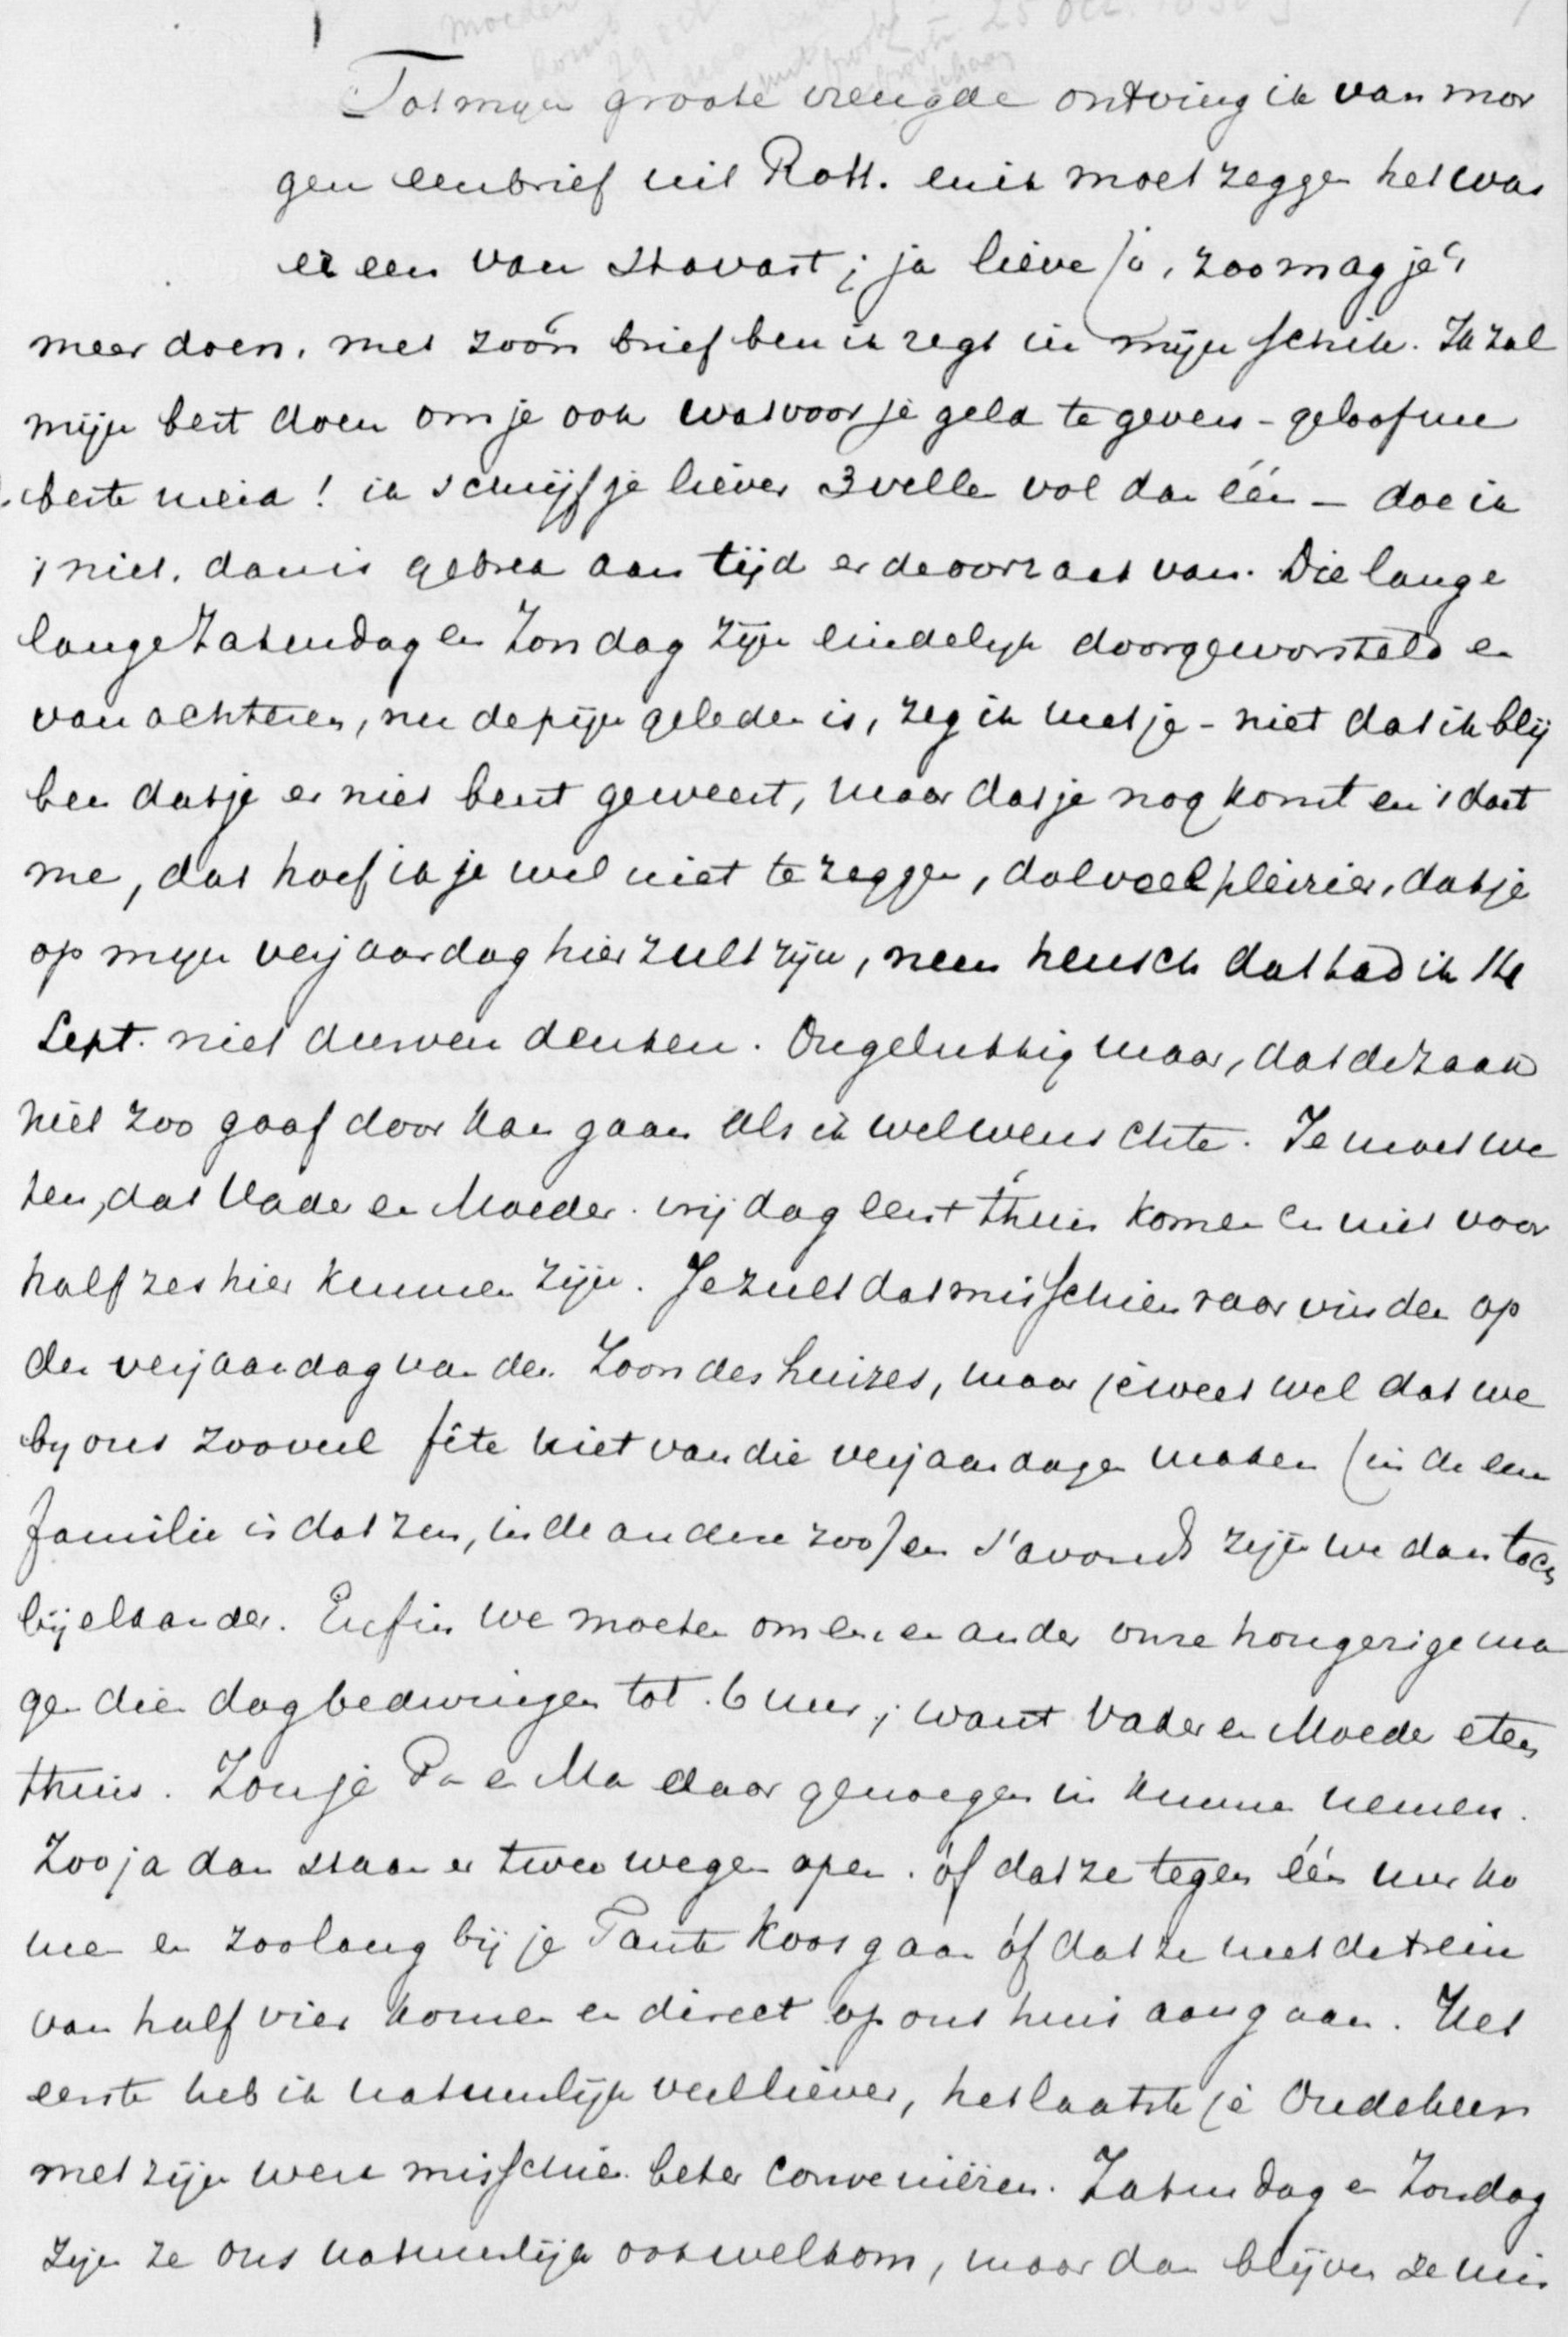 moeder 25 Oct.
Tot mijn groote vreugde ontving ik van mor
gen een brief uit Rott. en ik moet zeggen het was
er een van stavast; ja lieve Jo, zoo mag je 's
meer doen, met zoo'n brief ben ik regt in mijn schik. Ik zal
mijn best doen om je ook wat voor je geld te geven - geloof me
beste meid! ik schrijf je liever 3 vellen vol dan één - doe ik
't niet, dan is gebrek aan tijd er de oorzaak van. Die lange
lange Zaturdag en Zondag zijn eindelijk doorgeworsteld en
van achteren, nu de pijn geleden is, zeg ik met je - niet dat ik blij
ben dat je er niet bent geweest, maar dat je nog komt en 't doet
me, dat hoef ik je wel niet te zeggen, dolveel pleizier, dat je
op mijn verjaardag hier zult zijn, neen heusch dat had ik 14
Sept. niet durven denken. Ongelukkig maar, dat de zaak
niet zoo gaaf door kan gaan als ik wel wenschte. Je moet we
ten, dat Vader en Moeder vrijdag eerst t'huis komen en niet voor
half zes hier kunnen zijn. Je zult dat misschien raar vinden op
den verjaardag van den Zoon des huizes, maar je weet wel dat we
by ons zooveel fête niet van die verjaardagen maken (in de een
familie is dat zus, in de andere zoo) en s'avonds zijn we dan toch
bij elkander. Enfin we moeten om een en ander onze hongerige ma
gen dien dag bedwingen tot 6 uur; want Vader en Moeder eten
thuis. Zou je Pa en Ma daar genoegen in kunnen nemen.
Zoo ja dan staan er twee wegen open. óf dat ze tegen één uur ko
men en zoolang bij je Tante Koos gaan óf dat ze met de trein
van half vier komen en direct op ons huis aangaan. Het
eerste heb ik natuurlijk veel liever, het laatste je Oudeheer
met zijn werk misschien beter conveniëren. Zaturdag en Zondag
zijn ze ons natuurlijk ook welkom, maar dan blijven ze mis